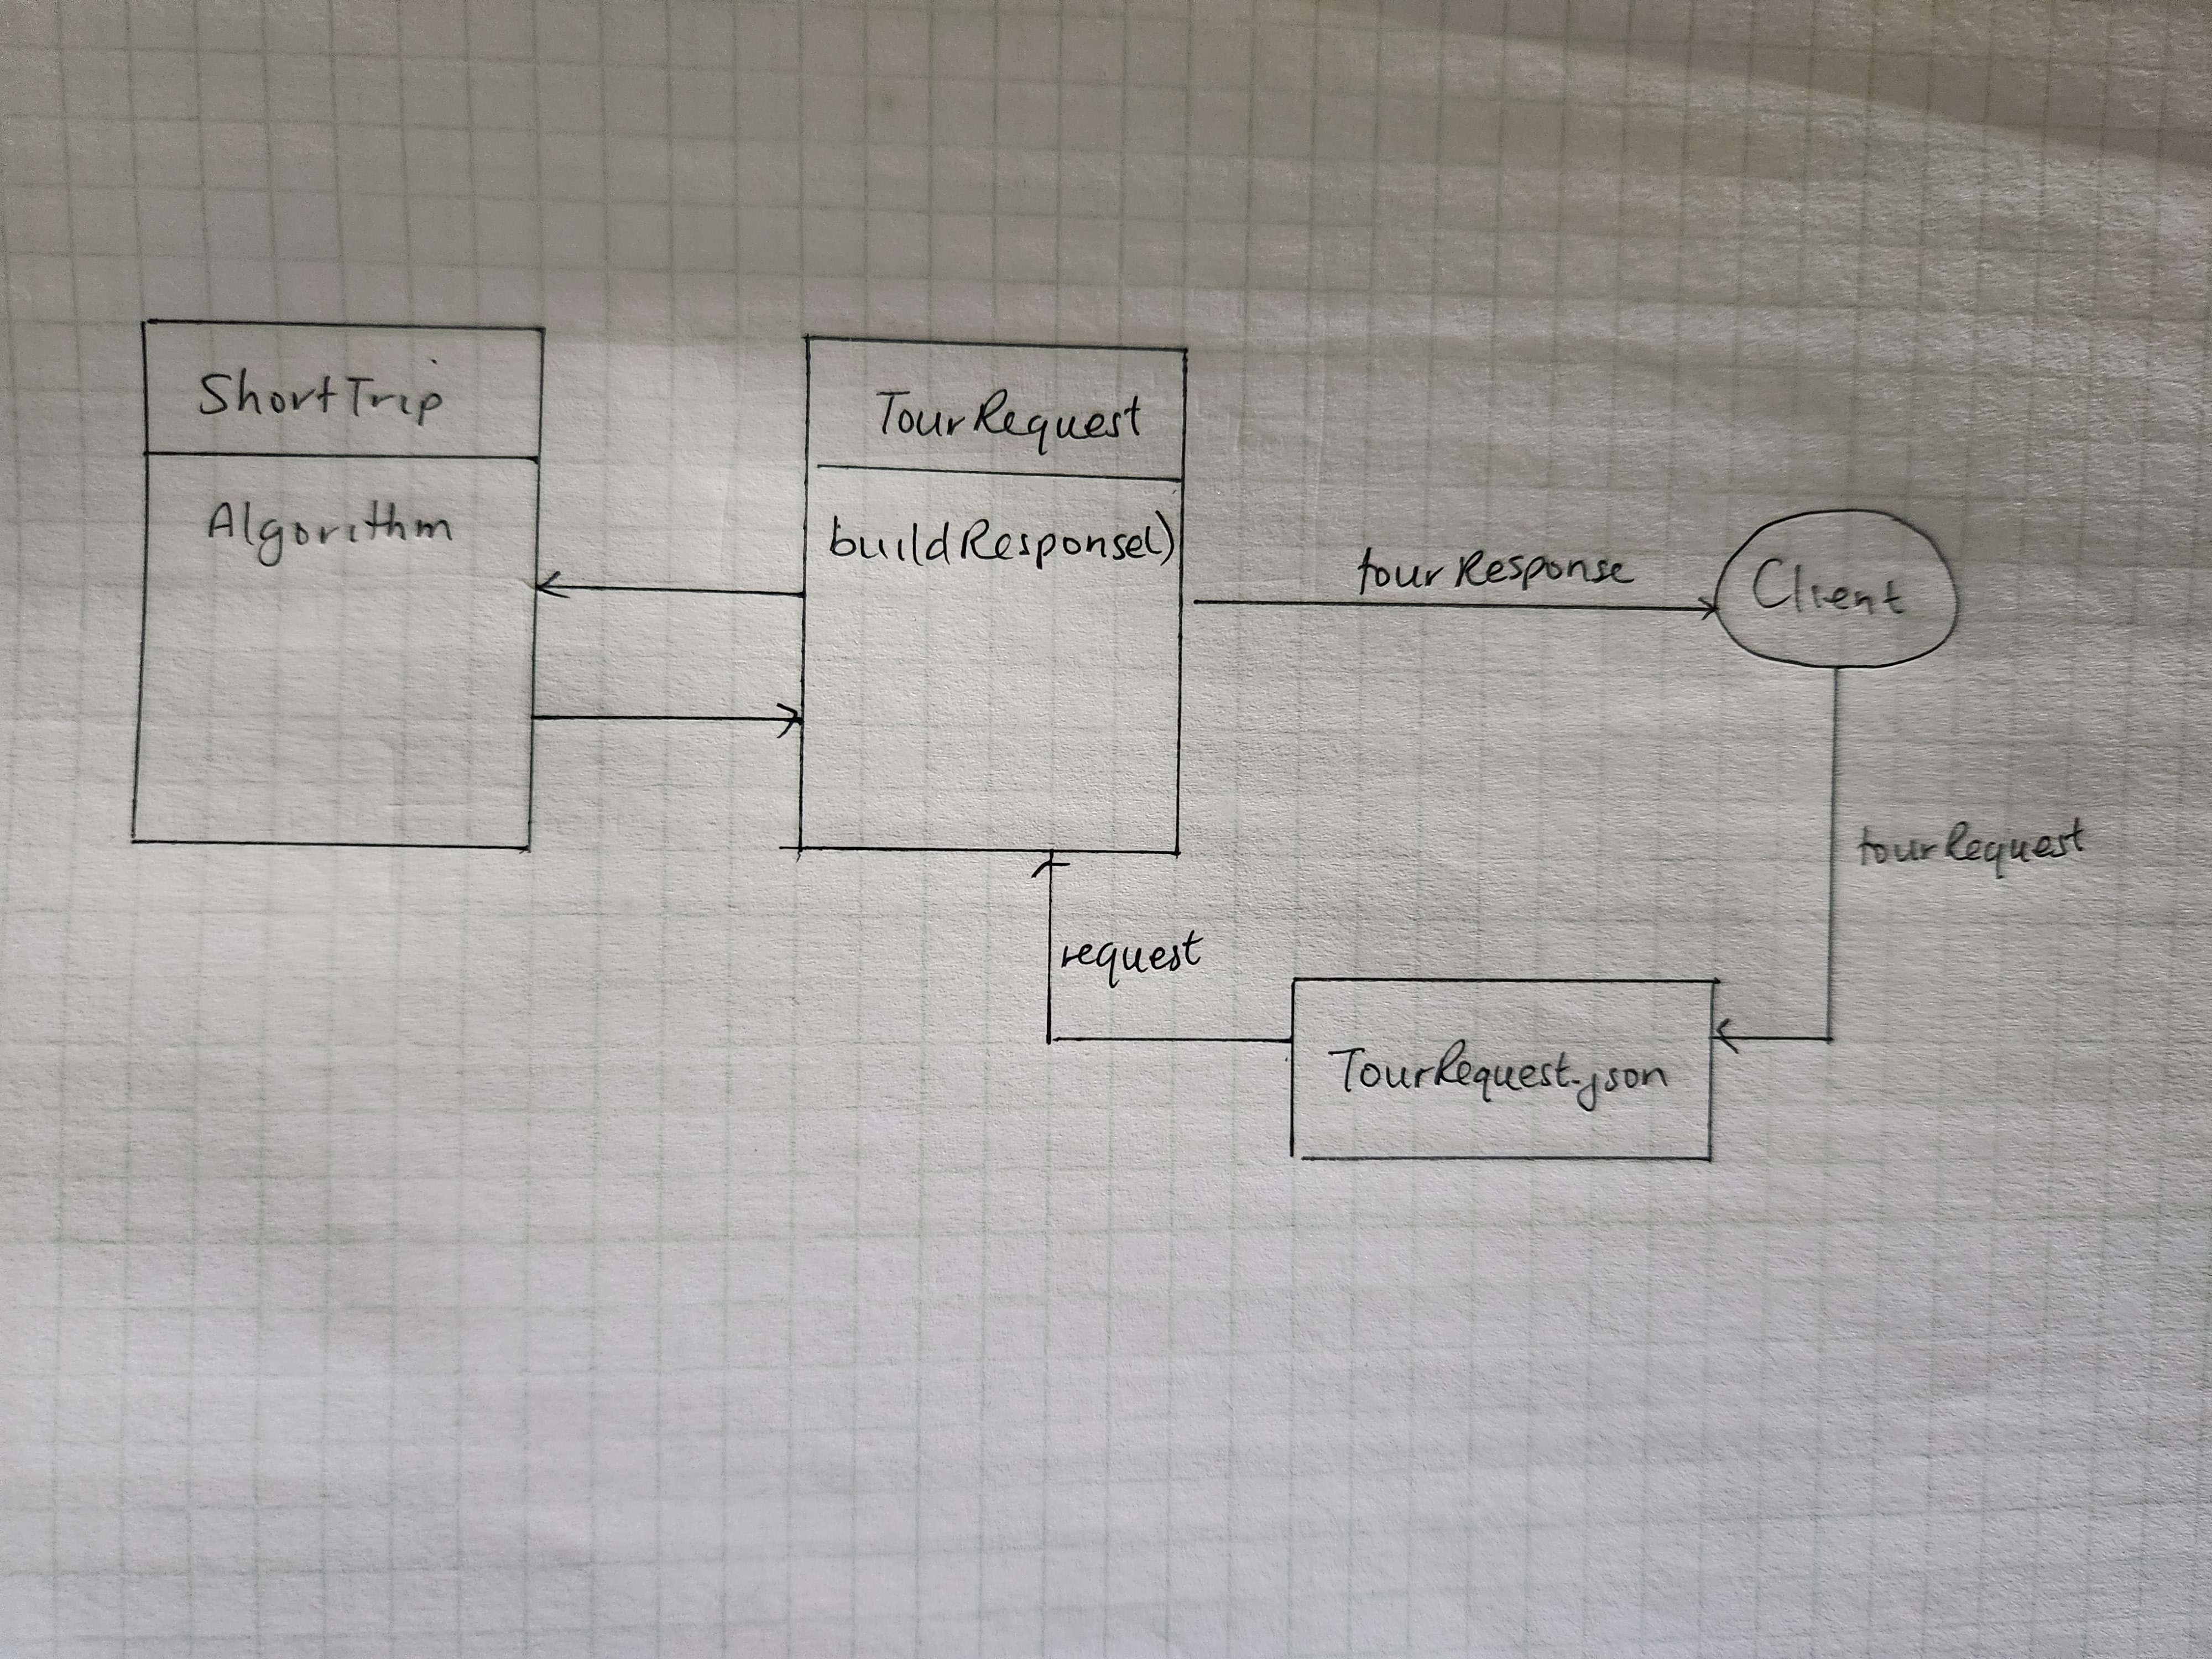 ShortTrip
Algorithm
TourRequest
buildResponse()
tourResponse
Client
tourRequest
request
TourRequest.json